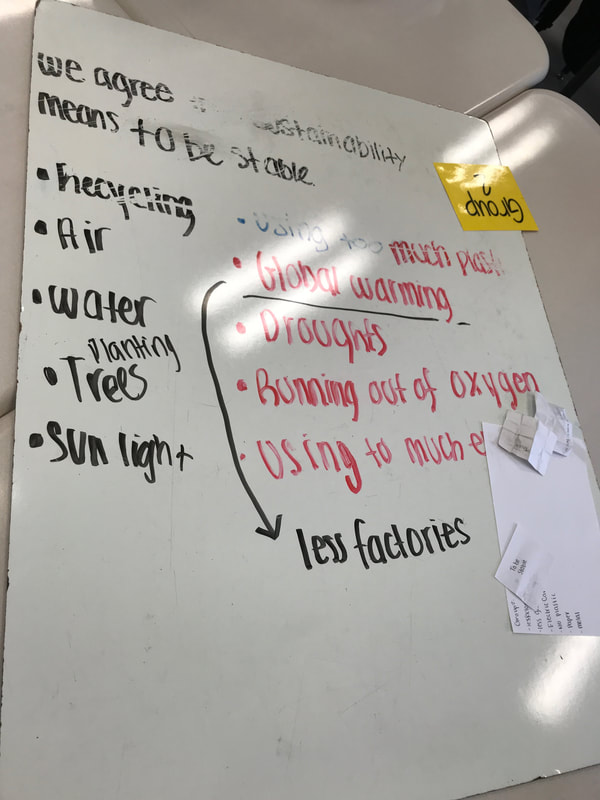 we agree sustainability
means to be stable.
• Recycling
• Air
• Water
Planting
• Trees
• Sun light
• Using too much plast
• Global warming
• Droughts
• Running out of oxygen
• Using to much e
less factories
Group
To be
Paper